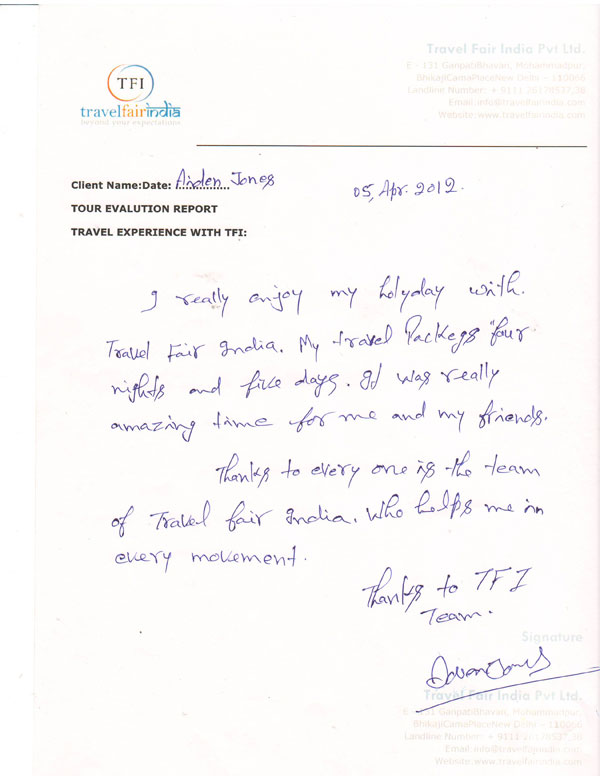 Travel Fair India Pvt Ltd.
E - 131 GanpatiBhavan, Mohammadpur,
BhikajiCamaPlaceNew Delhi - 110066
Landline Number: + 9111 26178537,38
Email:info@travelfairindia.com
Website:www.travelfairindia.com
TFI
travelfairindia
beyond your expectations
Client Name:Date: Aiden Jones 05, Apr. 2012.
TOUR EVALUTION REPORT
TRAVEL EXPERIENCE WITH TFI:
I really enjoy my holyday with.
Travel Fair India. My travel Packegs "four
nights and five days. It was really
amazing time for me and my friends.
Thanks to every one is the team
of Travel fair India. Who helps me in
every movement.
Thanks to TFI
Team.
Signature
Travel Fair India Pvt Ltd.
E - 131 GanpatiBhavan, Mohammadpur,
BhikajiCamaPlaceNew Delhi - 110066
Landline Number: + 9111 26178537,38
Email:info@travelfairindia.com
Website:www.travelfairindia.com